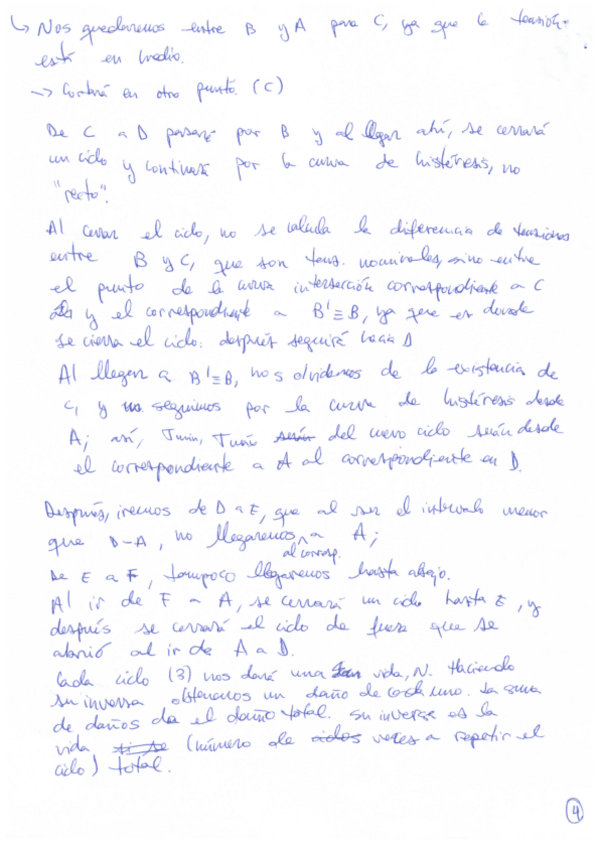 ↳ Nos quedaremos entre B y A para C, ya que la tensión
está en medio.
→ Cortará en otro punto. (C)
De C a D pasará por B y al llegar ahí, se cerrará
un ciclo y continuará por la curva de histéresis, no
"recto".
Al cerrar el ciclo, no se calcula la diferencia de tensiones
entre B y C, que son tens. nominales, sino entre
el punto de la curva intersección correspondiente a C
y el correspondiente a B'≡B, ya que es donde
se cierra el ciclo. después seguirá hacia D
Al llegar a B'≡B, nos olvidamos de la existencia de
C, y seguimos por la curva de histéresis desde
A; así, σmin, σmáx del nuevo ciclo serán desde
el correspondiente a A al correspondiente en D.
Después, iremos de D a E, que al ser el intervalo menor
que D-A, no llegaremos a A;
al corresp.
De E a F, tampoco llegaremos hasta abajo.
Al ir de F a A, se cerrará un ciclo hasta E, y
después se cerrará el ciclo de fuera que se
abrió al ir de A a D.
Cada ciclo (3) nos dará una vida, N. Haciendo
su inversa obtenemos un daño de cada uno. La suma
de daños da el daño total. su inversa es la
vida (número de veces a repetir el
ciclo) total.
4